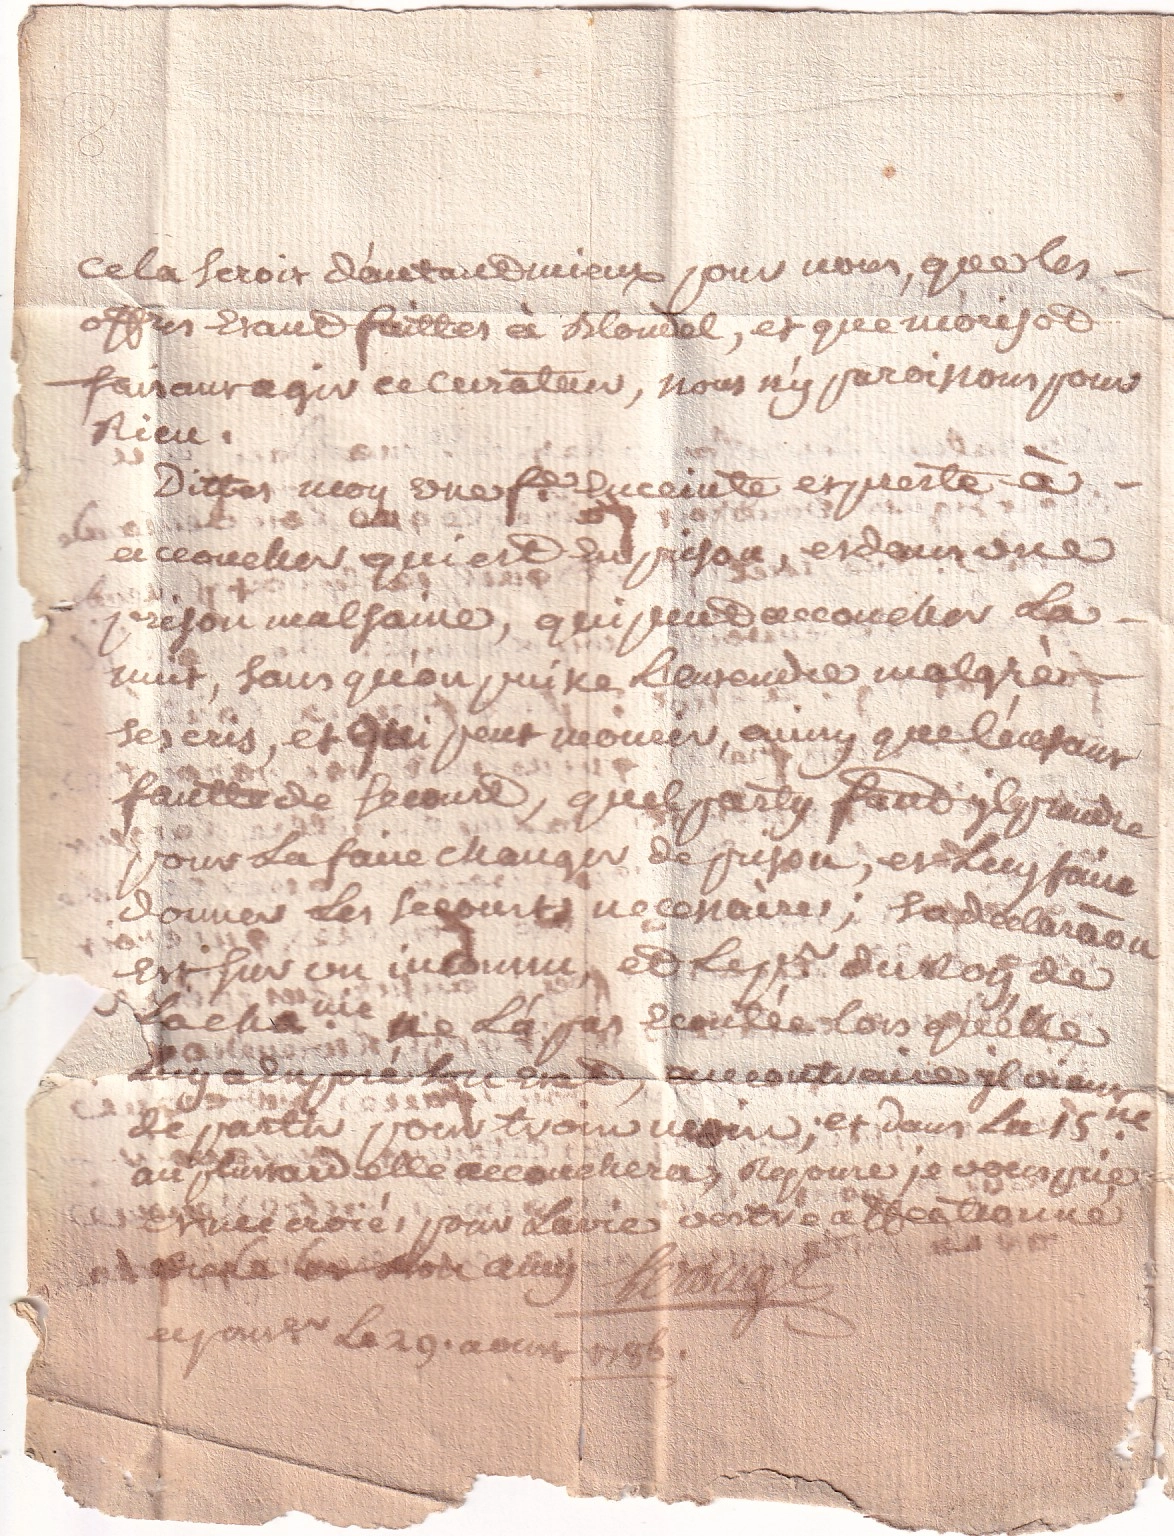 cela seroit d'autand mieux pour nous, que les -
offres Etand faittes à Blondel, et que morisod
faisant agir ce curateur, nous n'y paroissons pour
Rien.
Dittes moy une fe Enceinte et preste à -
accoucher qui est En prison, et dans une
prison malsaine, qui peud accoucher La -
nuit, sans qu'on puisse L'entendre malgré
ses cris, et qui peut mourir, ainsy que l'enfant
fautte de secours, quel party faud yl prendre
pour La faire changer de prison, et Luy faire
donner Les secours necessaires; sa declaraon
Est sur un inconnu, et Le pr du Roy de
La cha.nie ne L'a pas Ecoutée lors qu'elle
Luy a Exposé son Etat, au contraire yl vient
de partir pour trois mois; et dans La 15.ne
au plustard elle accouchera, Reponse je vous prie
et me croiés pour La vie vostre affectionné
amy Lerouge
ce Le 29. aoust 1786.